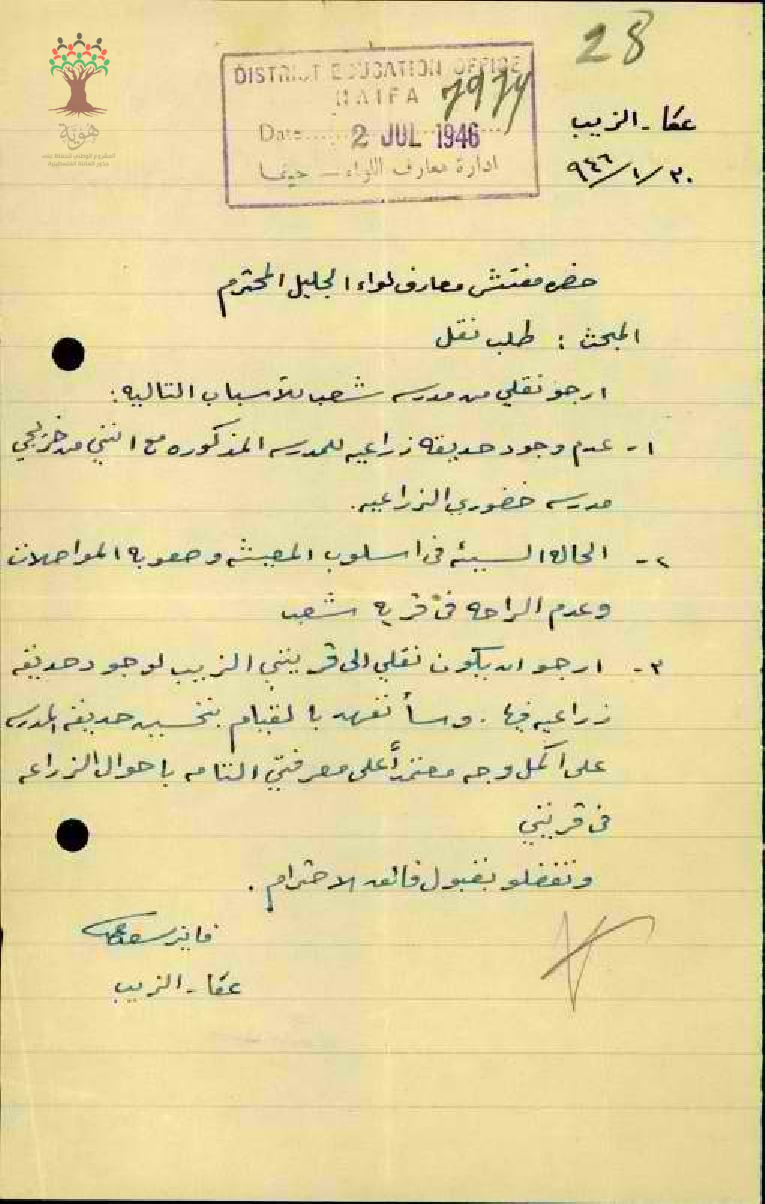 28
DISTRICT EDUCATION OFFICE
HAIFA
7974
Date..... 2 JUL 1946
ادارة معارف اللواء — حيفا
هوية
عكا - الزيب
٣٠/٦/٩٤٦
حضره مفتش معارف لواء الجليل المحترم
المبحث : طلب نقل
ارجو نقلي من مدرسه شعب للأسباب التاليه:
١- عدم وجود حديقه زراعيه للمدرسه المذكوره مع انني من خريجي
مدرسه خضوري الزراعيه.
٢- الحاله السيئه في اسلوب المعيشه وصعوبه المواصلات
وعدم الراحه في قريه شعب
٣- ارجو ان يكون نقلي الى قريتي الزيب لوجود حديقه
زراعيه فيها. وسأتعهد بالقيام بتحسين حديقه المدرسه
على اكمل وجه معتمداً على معرفتي التامه باحوال الزراعه
في قريتي
وتفضلو بقبول فائق الاحترام.
فايز سعد
عكا - الزيب